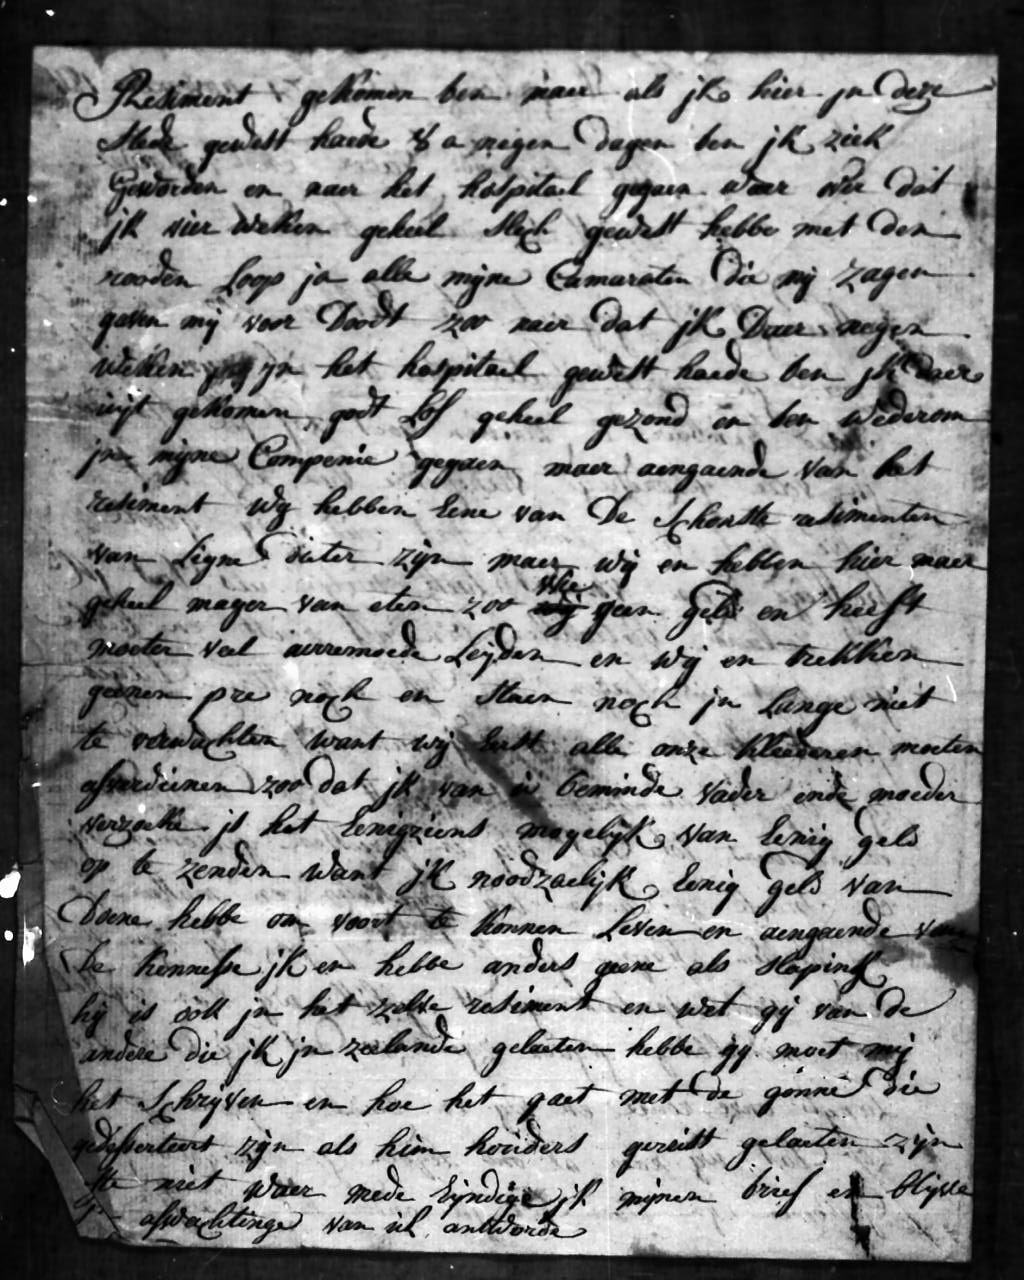 Resiment gekomen ben maer als jk hier jn deze
stede gewest haede 8 a negen dagen ben jk ziek
Geworden en naer het hospitael gegaen waer over dat
jk vier weken geheel slech gewest hebbe met den
rooden Loop jn alle mijne Camaraten die mij zagen
gaven mij voor Doodt zoo naer dat jk Daer negen
weken jn het hospitael gewest haede ben jk daer
uijt gekomen godt Lof geheel gezond en ben wederom
jn mijne Compenie gegaen maer aengaende van het
resiment wij hebben Eene van De schonste resimenten
van Ligne dieter zijn maer wij en hebben hier maer
geheel mager van eten zoo wie geen geld en heeft
moeter veel aerremoede Leijden en wij en trekken
geenen pre noch en staen noch jn Lange niet
te verwachten want wij Eerst alle onze kleederen moeten
afverdienen zoo dat jk van u beminde vader ende moeder
verzoeke js het Eenigziens mogelijk van Eenig geld
op te zenden want jk noodzaelijk Eenig geld van
Doene hebbe om voort te konnen Leven en aengaende van
De kennesse jk en hebbe anders geene als slapink
hij is ook jn het zelve resiment en wet gij van de
andere die jk jn zeelande gelaeten hebbe gij moet mij
het schrijven en hoe het gaet met de gonne die
gedesserteert zijn als hun houders gerust gelaeten zijn
ofte niet waer mede Eijndige jk mijnen brief en blijve
op afwachtinge van ul antworde